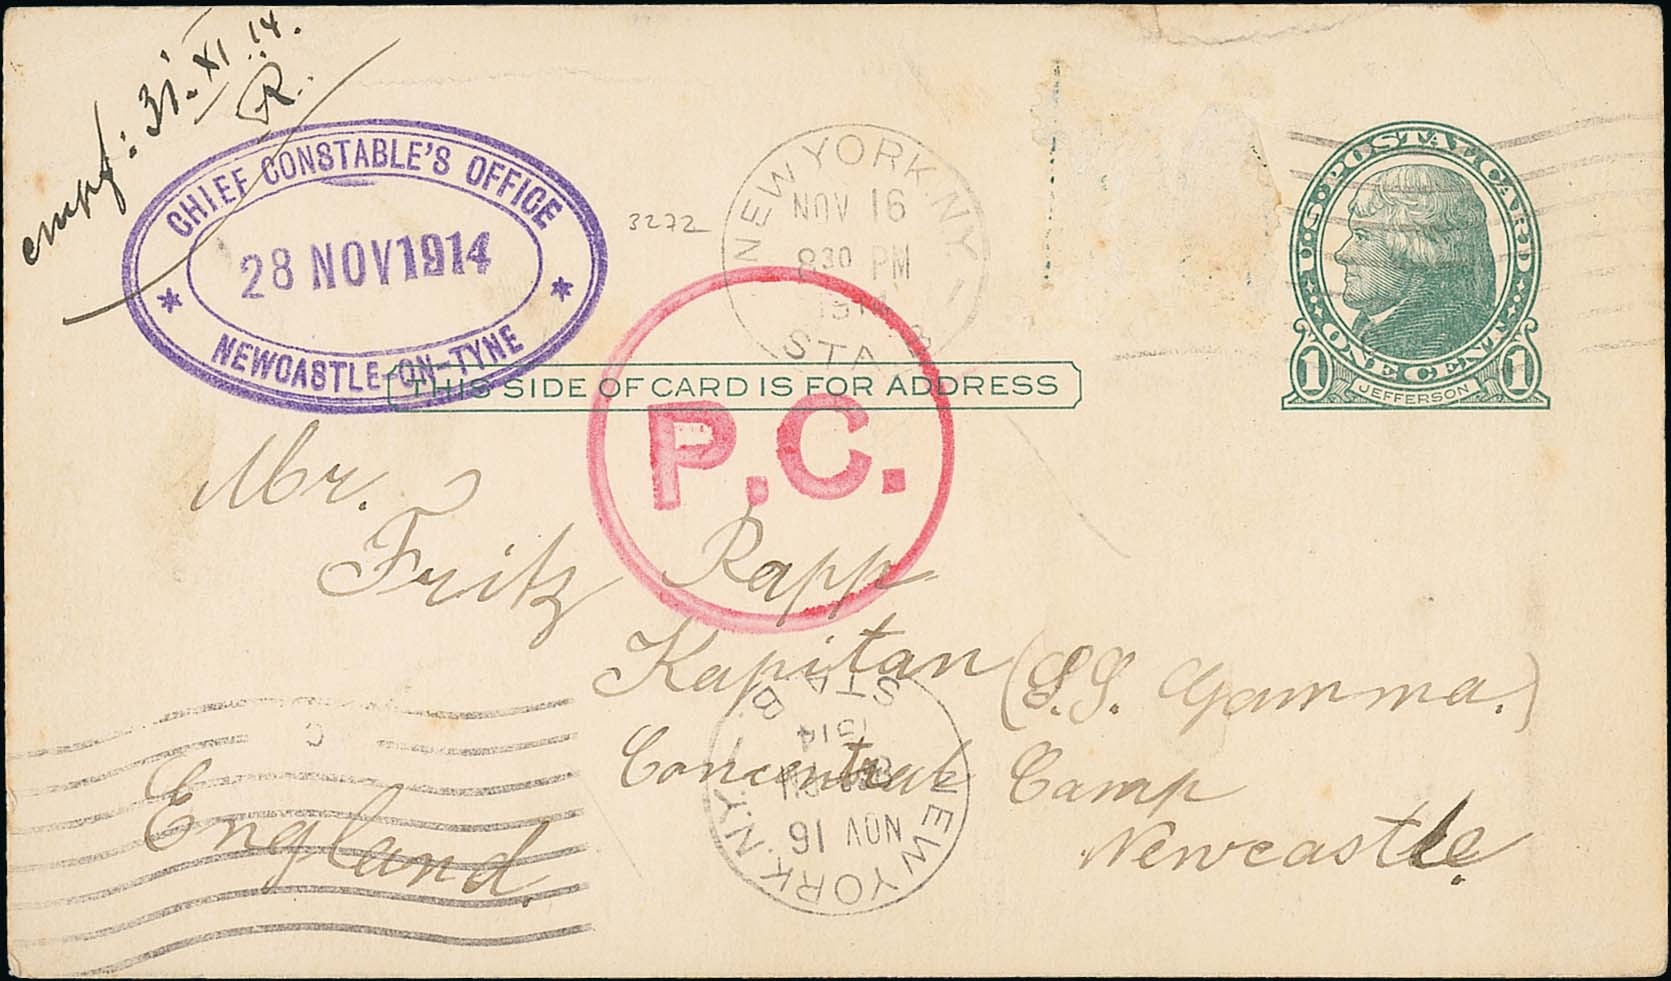 empf: 31. XI. 14.
R.
CHIEF CONSTABLE'S OFFICE
28 NOV 1914
NEWCASTLE-ON-TYNE
3272
NEW YORK, N.Y.
NOV 16
8 30 PM
1914
STA.
U.S. POSTAL CARD
1 ONE CENT 1
JEFFERSON
THIS SIDE OF CARD IS FOR ADDRESS
P.C.
Mr.
Fritz Rapp
Kapitan (S.S. Gamma.)
Concentrat Camp
Newcastle.
England.
NEW YORK, N.Y.
NOV 16
1914
STA B